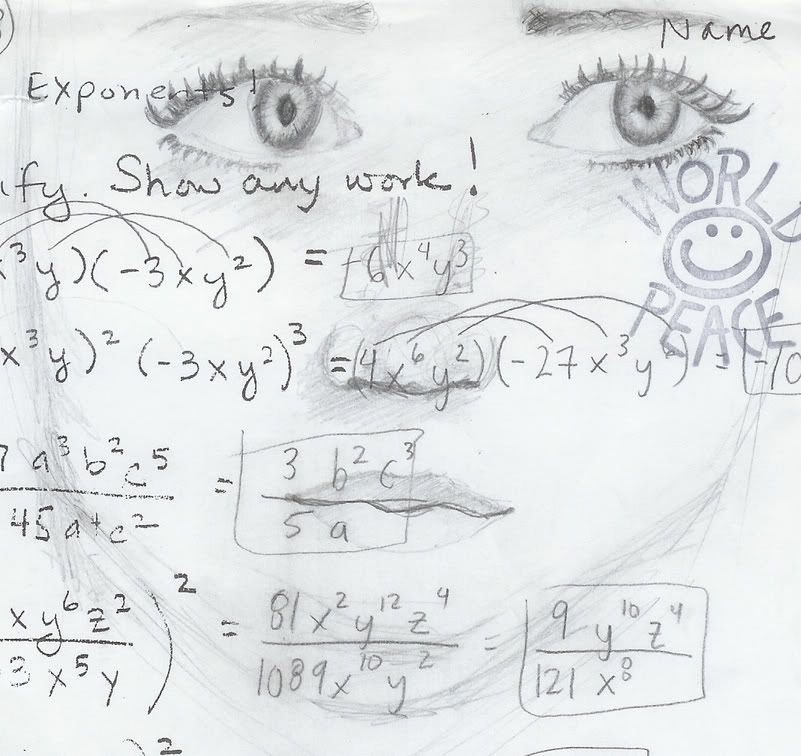 Name
Exponents!
ify. Show any work!
WORLD PEACE
x³y)(-3xy²) = -6x⁴y³
x³y)² (-3xy²)³ = (4x⁶y²)(-27x³y⁶) = -10
7a³b²c⁵ / 45a⁴c² = 3b²c³ / 5a
xy⁶z² / 3x⁵y)² = 81x²y¹²z⁴ / 1089x¹⁰y² = 9y¹⁰z⁴ / 121x⁸
)²